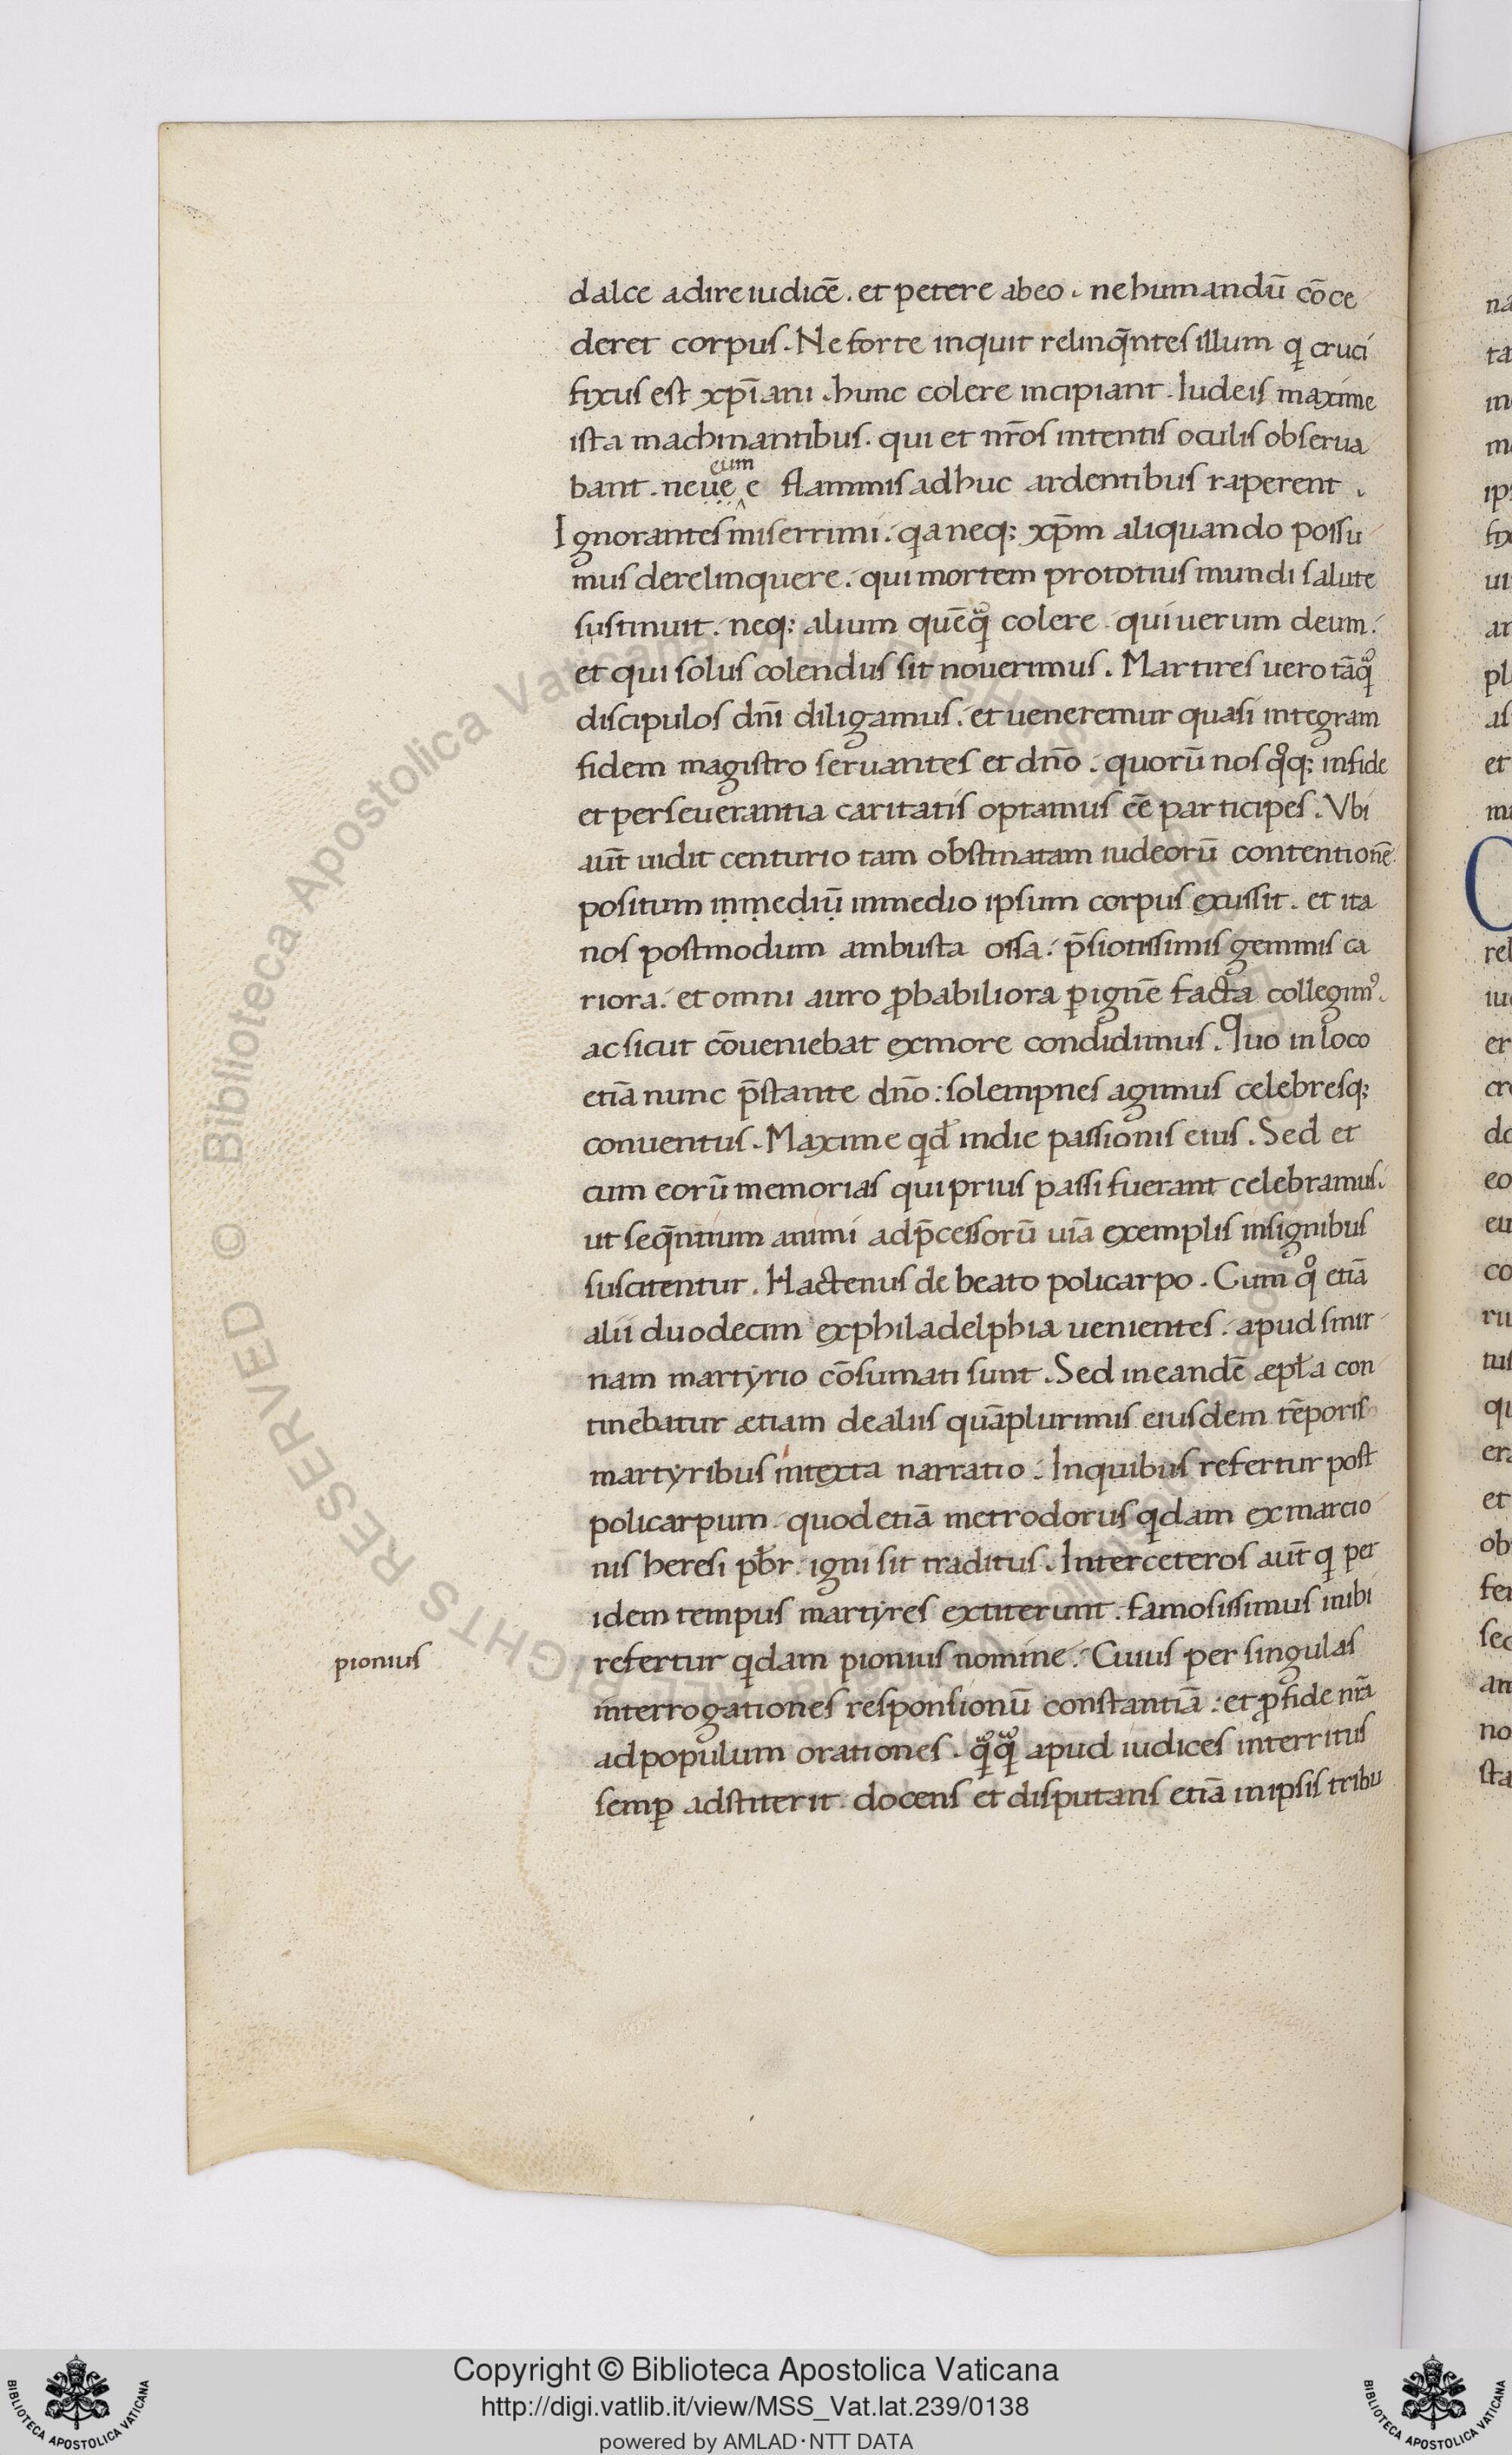 dalce adire iudicē. et petere ab eo. ne humandū cōce
deret corpus. Ne forte inquit relinq̄ntes illum q cruci
fixus est xp̄iani. hunc colere incipiant. Iudeis maxime
ista machinantibus. qui et nr̄os intentis oculis obserua
eum
bant. neue e flammis adhuc ardentibus raperent.
Ignorantes miserrimi. qa neq; xp̄m aliquando possu
mus derelinquere. qui mortem pro totius mundi salute
sustinuit. neq; alium quēq̃ colere. qui uerum deum.
et qui solus colendus sit nouerimus. Martires uero tāq̃
discipulos dn̄i diligamus. et ueneremur quasi integram
fidem magistro seruantes et dn̄o. quorū nos qͦq; in fide
et perseuerantia caritatis optamus eē participes. Vbi
aut̄ uidit centurio tam obstinatam iudeorū contentionē.
positum in mediū in medio ipsum corpus exussit. et ita
nos postmodum ambusta ossa. p̄siotissimis gemmis ca
riora. et omni auro ꝓbabiliora ꝑ ignē facta collegimꝰ.
ac sicut cōueniebat ex more condidimus. Quo in loco
etiā nunc p̄stante dn̄o: solempnes agimus celebresq;
conuentus. Maxime qd̄ in die passionis eius. Sed et
cum eorū memorias qui prius passi fuerant celebramus.
ut seq̄ntium animi ad p̄cessorū uiā exemplis insignibus
suscitentur. Hactenus de beato policarpo. Cum qͦ etiā
alii duodecim ex philadelphia uenientes. apud smir
nam martyrio cōsumati sunt. Sed in eandē æpl̄a con
tinebatur ætiam de aliis quāplurimis eiusdem tēporis
martyribus intexta narratio. In quibus refertur post
policarpum. quod etiā metrodorus qdam ex marcio
nis heresi pb̄r. igni sit traditus. Inter ceteros aut̄ q per
idem tempus martyres extiterunt. famosissimus inibi
pionius
refertur qdam pionius nomine. Cuius per singulas
interrogationes responsionū constantiā: et ꝓ fide nr̄a
ad populum orationes. q̃q̃ apud iudices interritus
semꝑ adstiterit. docens et disputans etiā in ipsis tribu
Copyright © Biblioteca Apostolica Vaticana
http://digi.vatlib.it/view/MSS_Vat.lat.239/0138
powered by AMLAD·NTT DATA